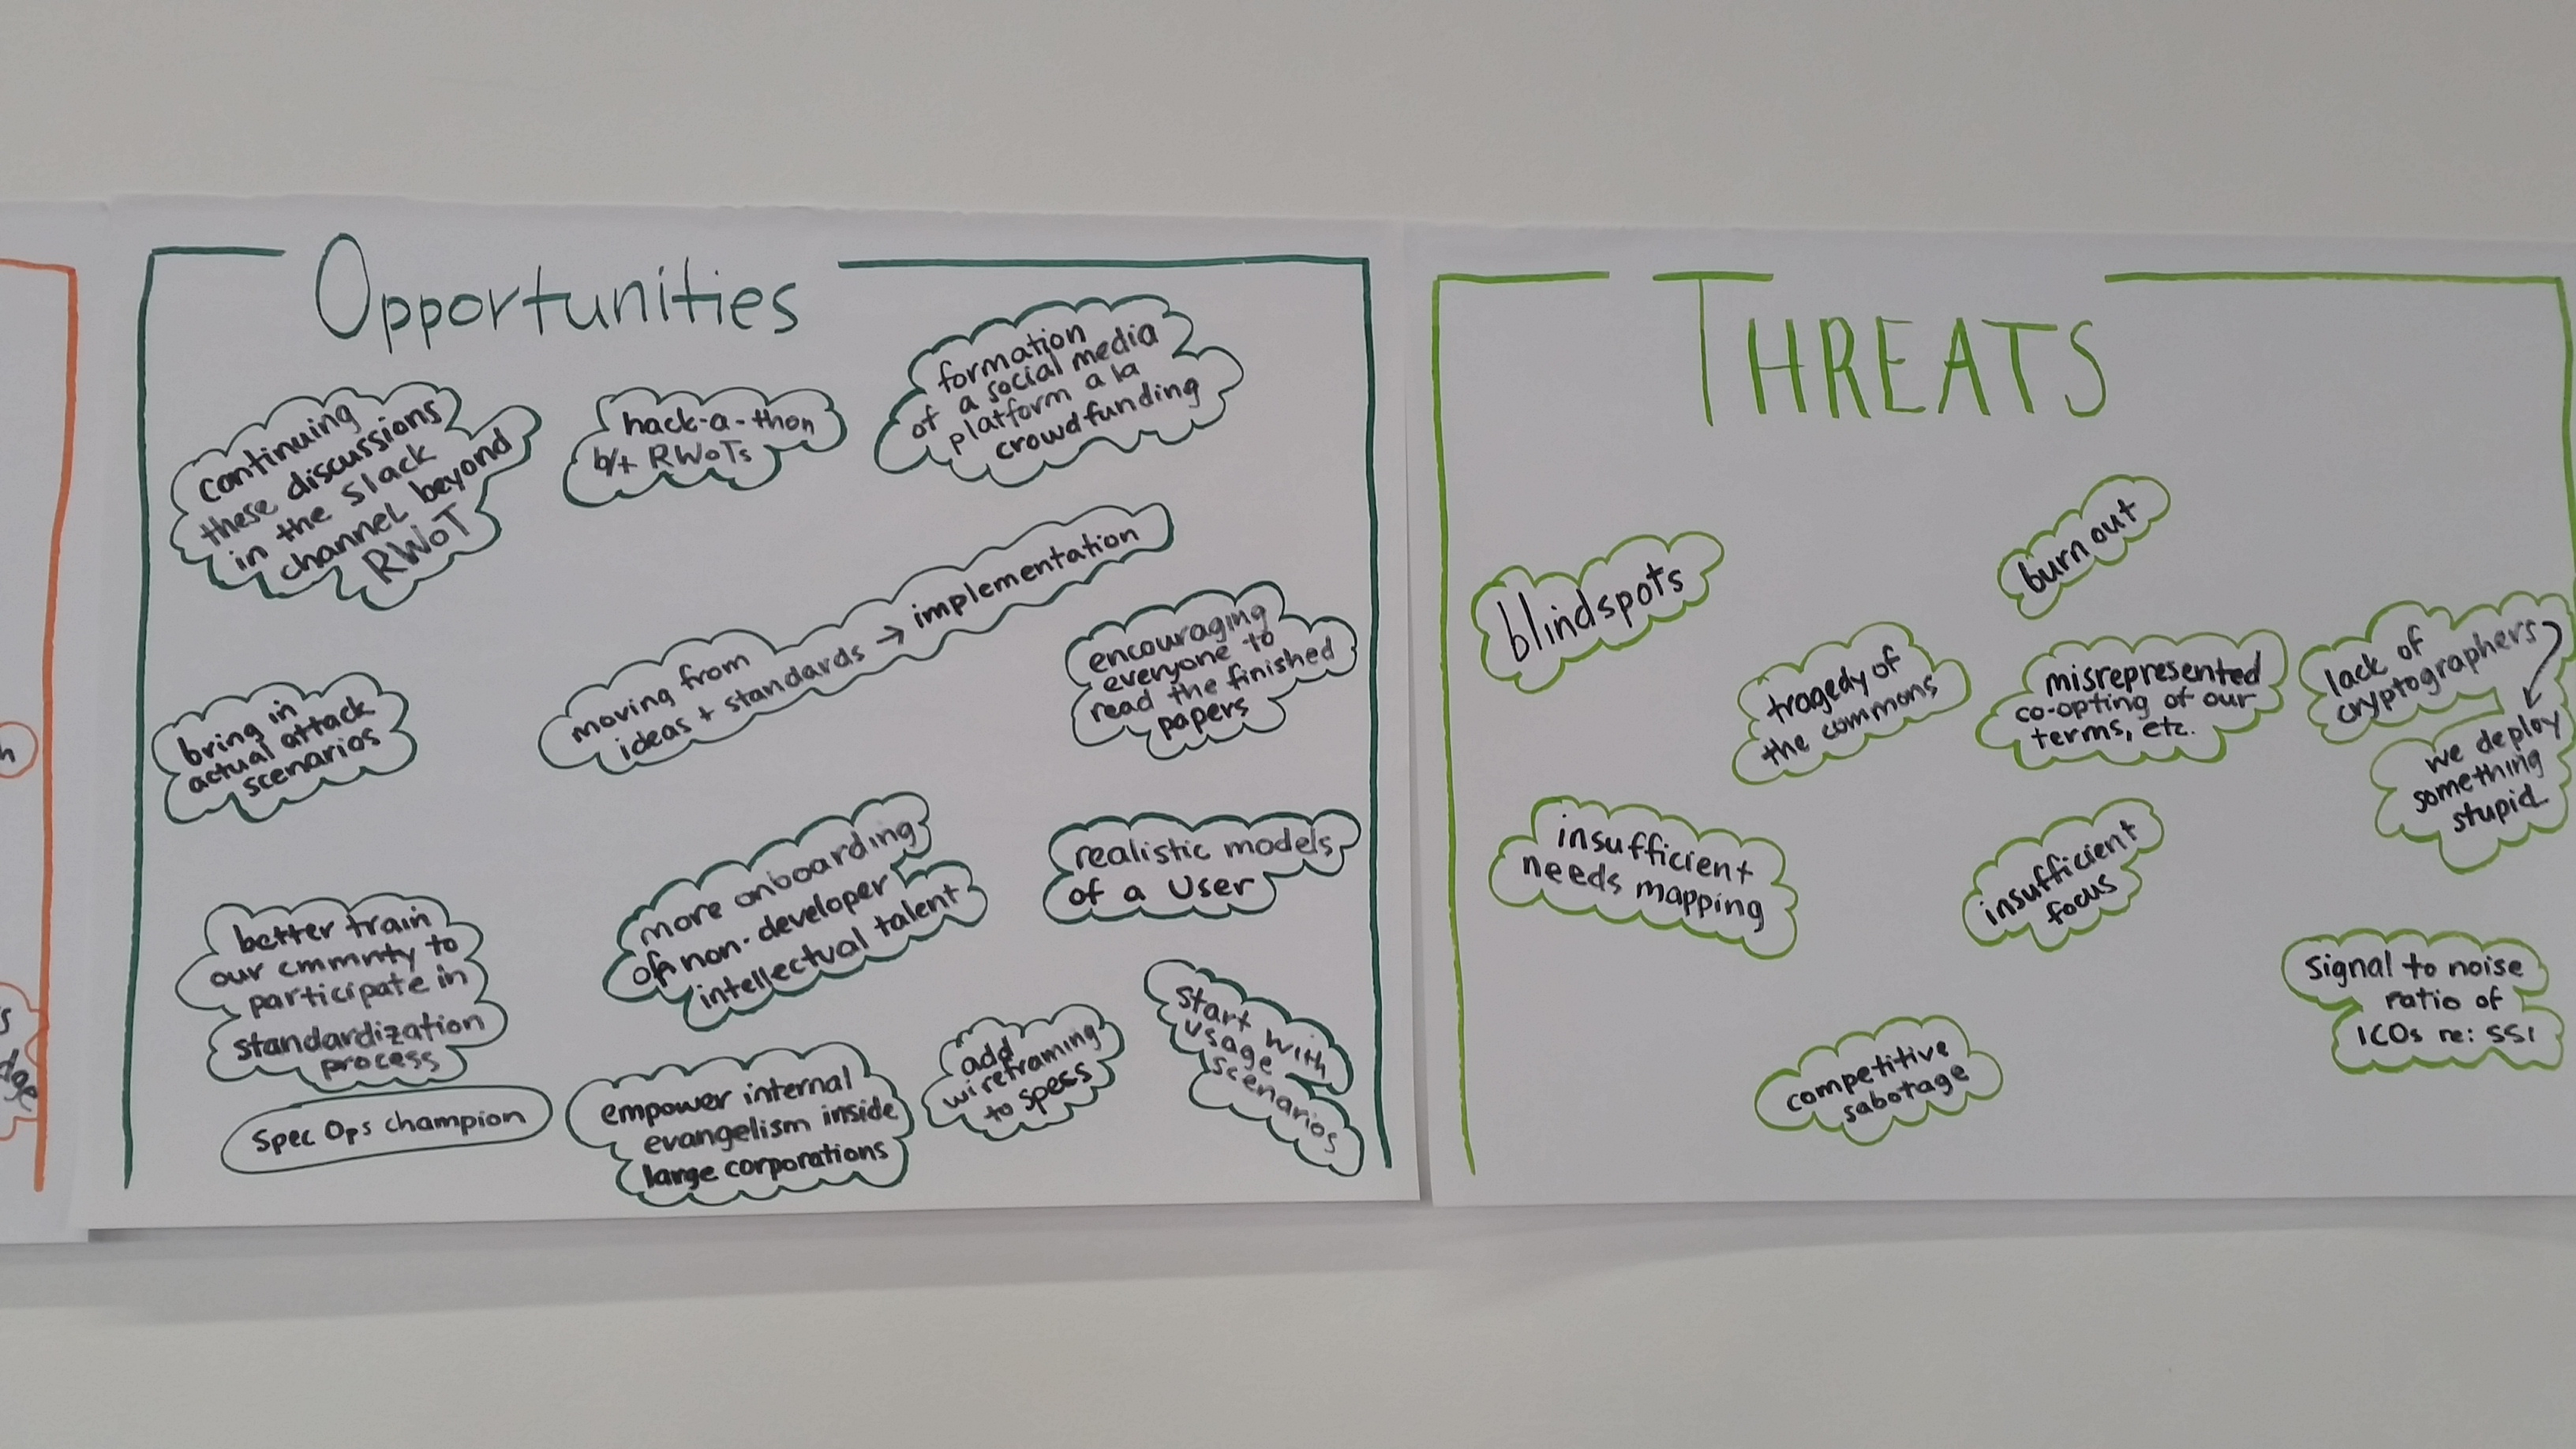 Opportunities
continuing
these discussions
in the slack
channel beyond
RWoT
hack-a-thon
b/t RWoTs
formation
of a social media
platform a la
crowdfunding
moving from
ideas + standards → implementation
encouraging
everyone to
read the finished
papers
bring in
actual attack
scenarios
more onboarding
of non-developer
intellectual talent
realistic models
of a User
better train
our cmmnty to
participate in
standardization
process
Spec Ops champion
empower internal
evangelism inside
large corporations
add
wireframing
to specs
start with
usage
scenarios
THREATS
blindspots
burn out
tragedy of
the commons
misrepresented
co-opting of our
terms, etc.
lack of
cryptographers
we deploy
something
stupid
insufficient
needs mapping
insufficient
focus
signal to noise
ratio of
ICOs re: SSI
competitive
sabotage